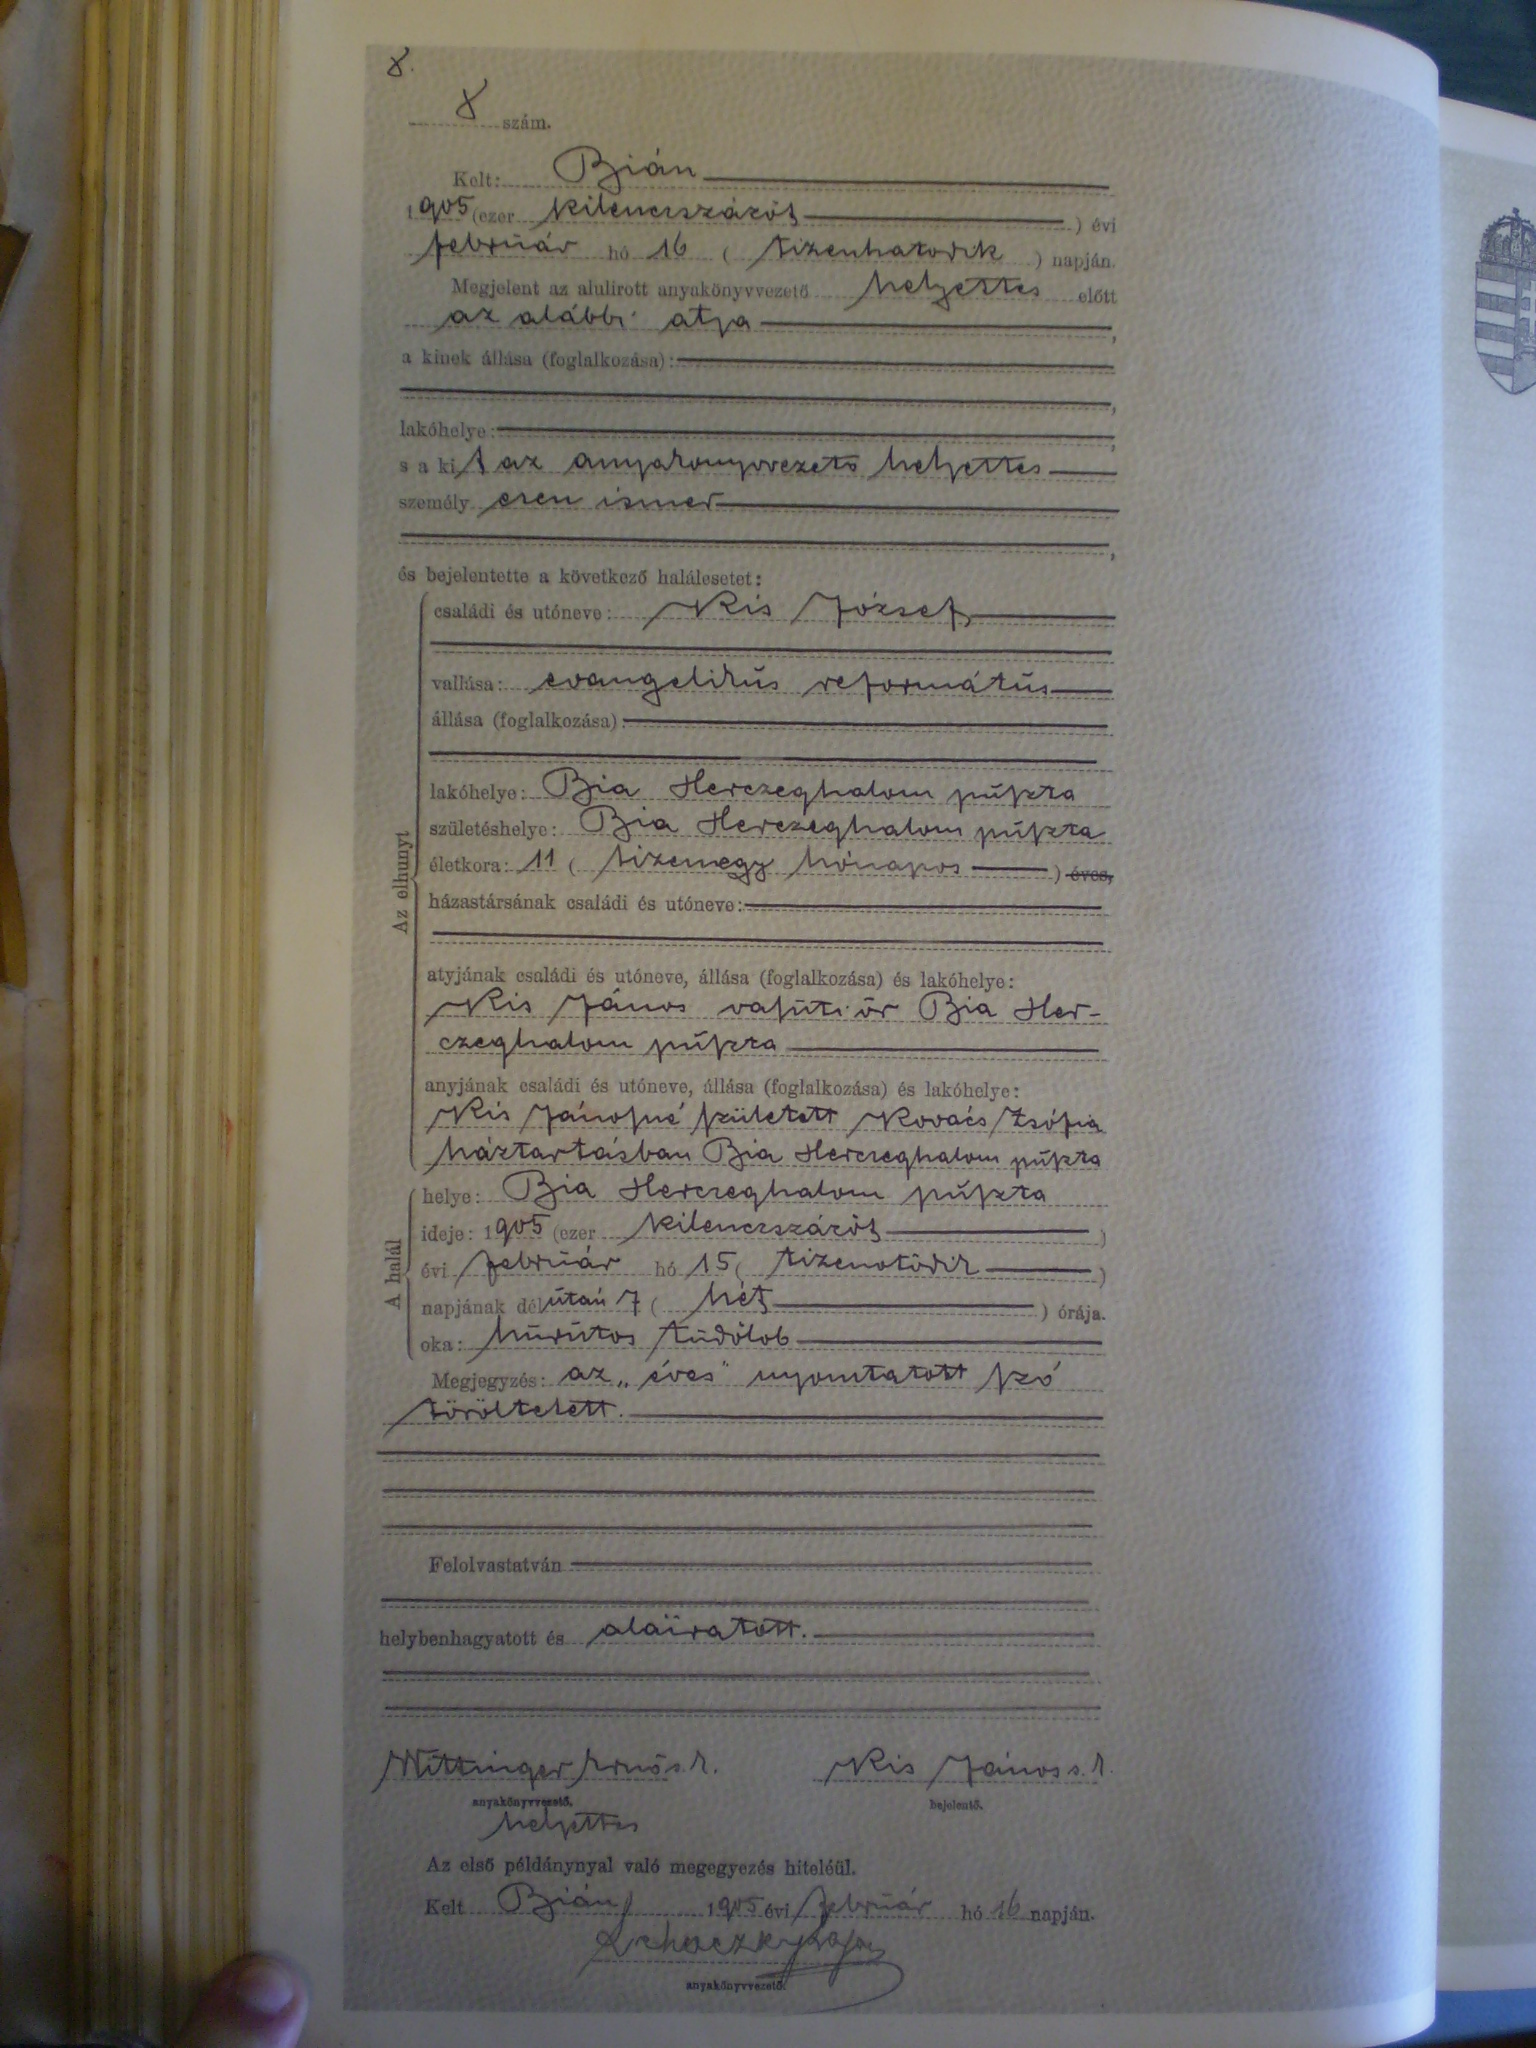 8.
8 szám.
Kelt: Bián
1905 (ezer kilenczszázöt ) évi
február hó 16 ( tizenhatodik ) napján.
Megjelent az alulirott anyakönyvvezető helyettes előtt
az alábbi atya ,
a kinek állása (foglalkozása):
,
lakóhelye: ,
s a kit az anyakönyvvezető helyettes
személyesen ismer
,
és bejelentette a következő halálesetet:
Az elhunyt
családi és utóneve: Kis József
vallása: evangelikus református
állása (foglalkozása):
lakóhelye: Bia Herczeghalom puszta
születéshelye: Bia Herczeghalom puszta
életkora: 11 ( tizenegy hónapos ) éves,
házastársának családi és utóneve:
atyjának családi és utóneve, állása (foglalkozása) és lakóhelye:
Kis János vasúti őr Bia Her-
czeghalom puszta
anyjának családi és utóneve, állása (foglalkozása) és lakóhelye:
Kis Jánosné született Kovács Zsófia
háztartásban Bia Herczeghalom puszta
A halál
helye: Bia Herczeghalom puszta
ideje: 1905 (ezer kilenczszázöt )
évi február hó 15 ( tizenötödik )
napjának délután 7 ( hét ) órája.
oka: hurutos tüdőlob
Megjegyzés: az „éves" nyomtatott szó
töröltetett.
Felolvastatván
helybenhagyatott és aláiratott.
Wittinger Ernő s. k. Kis János s. k.
anyakönyvvezető. bejelentő.
helyettes
Az első példánynyal való megegyezés hiteléül.
Kelt Bián, 1905 évi február hó 16 napján.
anyakönyvvezető.